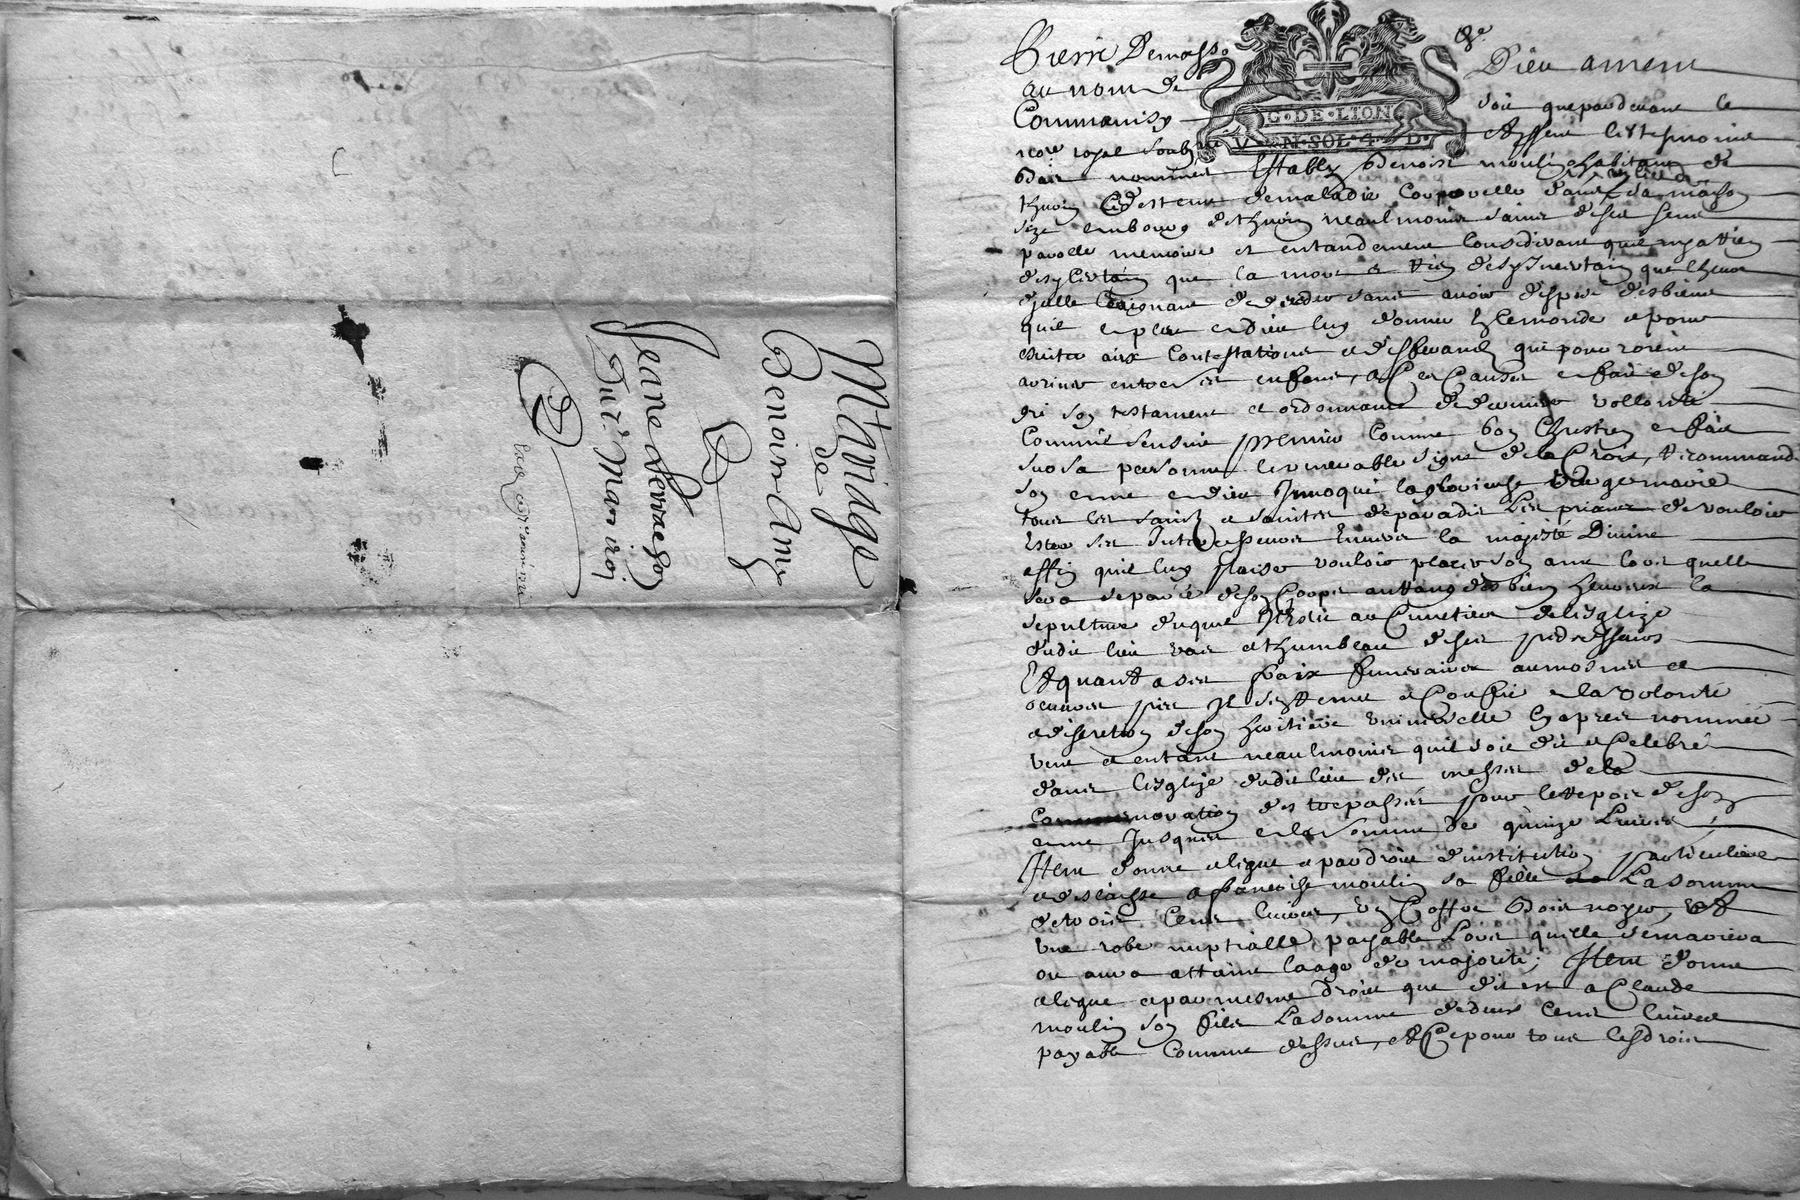 Mariage
de
Benoist Am
&
Jeane
Du
Pierre Demasso
au nom de Dieu amen
G·DE·LION
VN·SOL·4·D·
soit que pardevant le
nore royal soub
bas nommes Establyt Benoist moulin habitant de
thuri detenu de maladie corporelle dans sa maison
size au bourg de thurin neaulmoins sains de ses sens
parolle memoire et entandement Considerant quil ny a rien
de sy certain que la mort et rien de sy Incertain que lheure
dicelle craignant de deceder sans avoir dispoze des biens
quil a pleu a dieu luy donner en ce monde et pour
esviter aux Contestations et differands qui pourroient
arriver entre ses enfans, a ces Causes a fait de son
gré son testament et ordonnance de derniere vollonté
Comme sensuit premier Comme bon Chrestien a fait
sur sa personne le venerable signe de la Croix, recommandé
son ame a dieu Invoqué la glorieuse vierge marie
tous les saints et saintes de paradis les priant de vouloir
Estre ses Intercesseurs Envers la majesté Divine
affin quil luy plaise vouloir placer son ame lors quelle
sera separée de son Corps au rang des bien heureux la
sepulture duquel Il Eslit au Cimetiere de lesglize
dudit lieu vas et thumbeau de ses predecesseurs
Et quant a ses fraix funeraires aumosnes et
oeuvres pies Il sen remet et Confie a la volonté
et discretion de son heritiere universelle cy apres nommée
veut et entant neaulmoins quil soit dit et Celebré
dans lesglize dudit lieu des messes de la
Commemoration des trepassés pour le repos de son
ame Jusques a la somme de quinze Livres
Item donne et legue et par droit dinstitution particuliere
et delaisse a francoise moulin sa fille La somme
de trois Cens livres, un Coffre bois noyer, et
une robe nuptialle, payable Lors quelle se mariera
ou aura attaint laage de majorité; Item donne
et legue et par mesme droit que dessus a Claude
moulin son fils La somme de deux Cens livres
payable Comme dessus, et Ce pour tous les droits